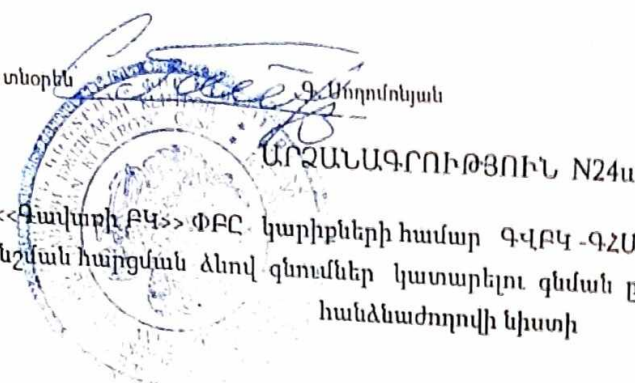 տնօրեն Գ. Սողոմոնյան
ԱՐՁԱՆԱԳՐՈՒԹՅՈՒՆ N24ա
<<Գավառի ԲԿ>> ՓԲԸ կարիքների համար ԳՎԲԿ-ԳՀ
նշման հարցման ձևով գնումներ կատարելու գնման ը
հանձնաժողովի նիստի